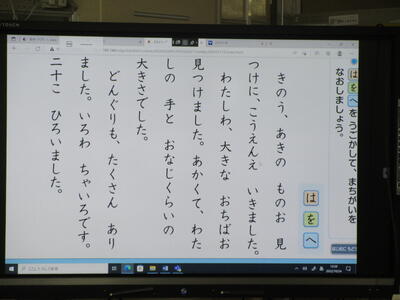 はをへをうごかして、まちがいを
なおしましょう。
はをへ
きのう、あきの ものお 見
つけに、こうえんえ いきました。
わたしわ、大きな おちばお
見つけました。あかくて、わた
しの 手と おなじくらいの
大きさでした。
どんぐりも、たくさん あり
ました。いろわ ちゃいろです。
二十こ ひろいました。